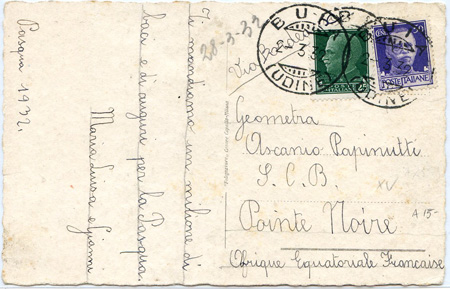 Pasqua 1932.
Ti mandiamo un milione di
baci e di auguri per la Pasqua.
Maria Luisa e Gianni
28-3-32
Via
BU
(UDINE)
POSTE ITALIANE
Geometra
Ascanio Papinutti
S. C. B.
Pointe Noire
Afrique Equatoriale Francaise
XV
A 15-